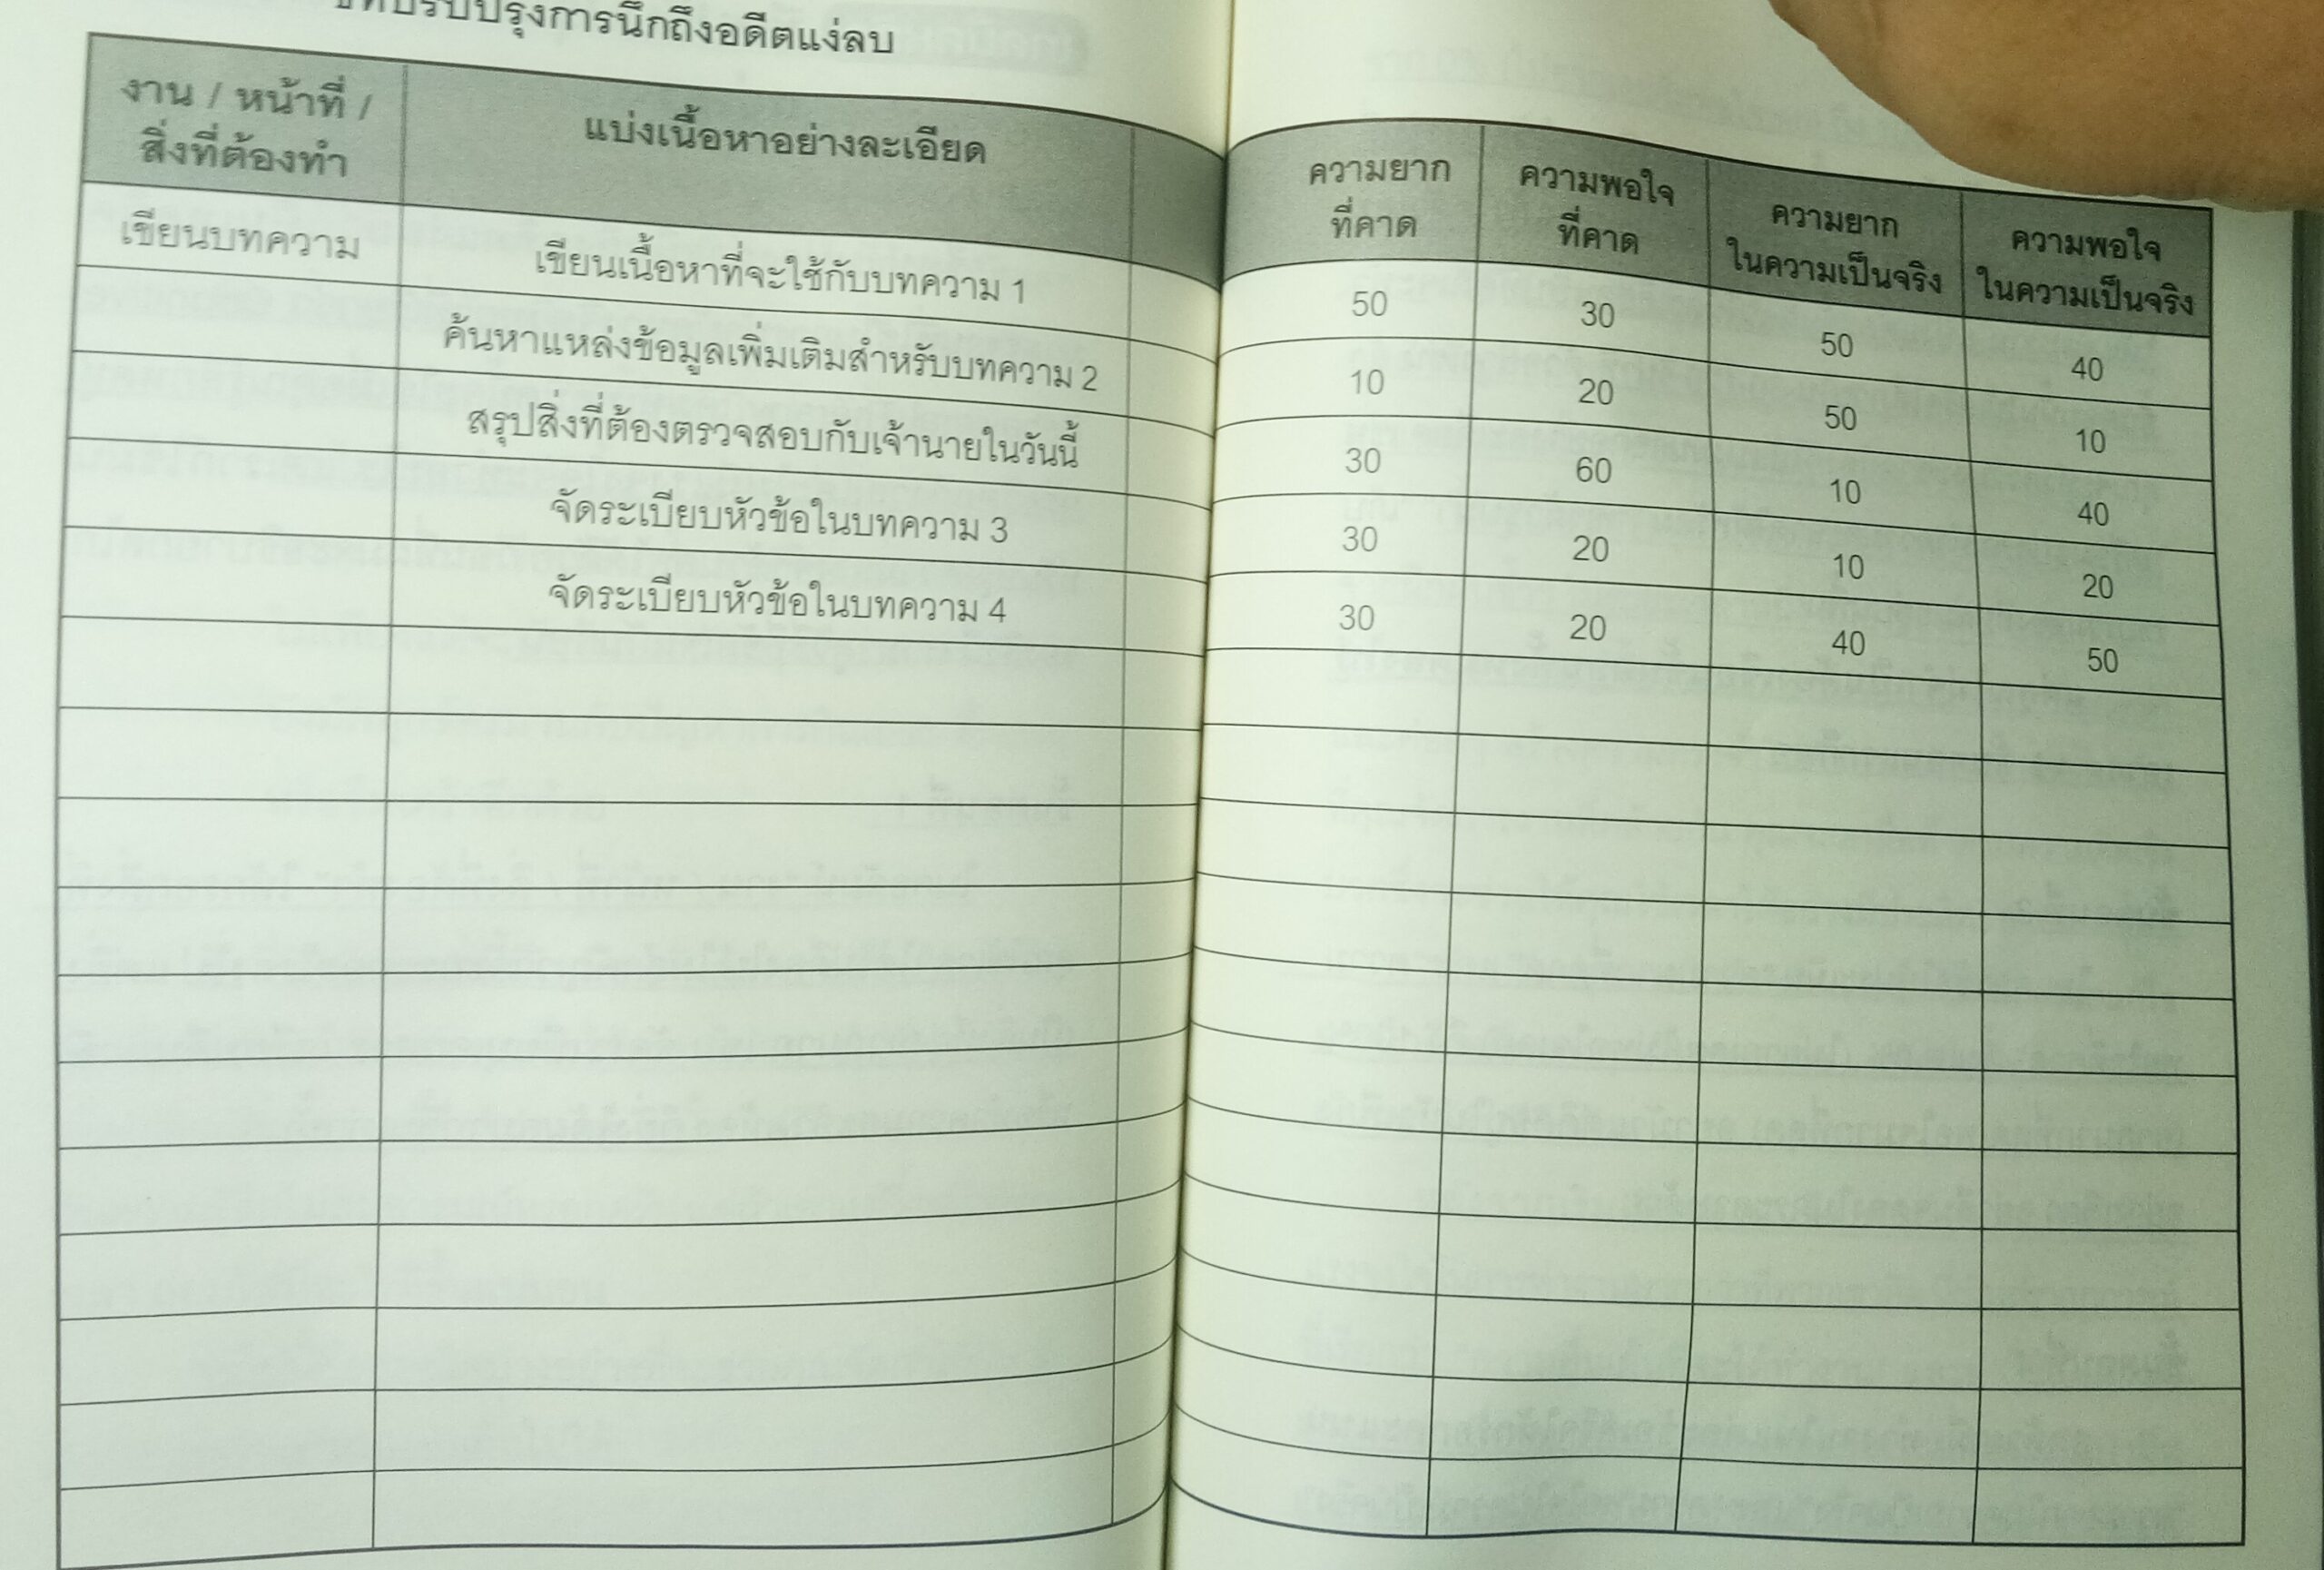 การนึกถึงอดีตแง่ลบ
งาน / หน้าที่ / สิ่งที่ต้องทำ แบ่งเนื้อหาอย่างละเอียด ความยากที่คาด ความพอใจที่คาด ความยากในความเป็นจริง ความพอใจในความเป็นจริง
เขียนบทความ เขียนเนื้อหาที่จะใช้กับบทความ 1 50 30 50 40
ค้นหาแหล่งข้อมูลเพิ่มเติมสำหรับบทความ 2 10 20 50 10
สรุปสิ่งที่ต้องตรวจสอบกับเจ้านายในวันนี้ 30 60 10 40
จัดระเบียบหัวข้อในบทความ 3 30 20 10 20
จัดระเบียบหัวข้อในบทความ 4 30 20 40 50